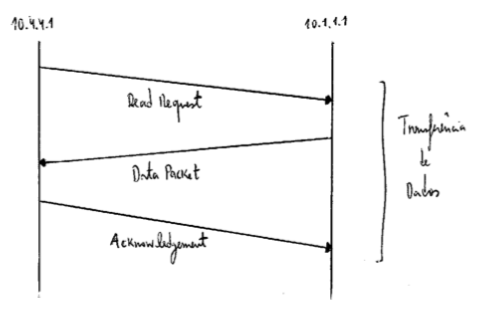 10.4.4.1
10.1.1.1
Read Request
Data Packet
Acknowledgement
Transferência
de
Dados